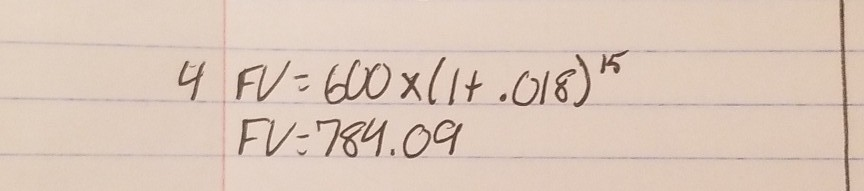 4 FV=600×(1+.018)¹⁵
FV=784.09